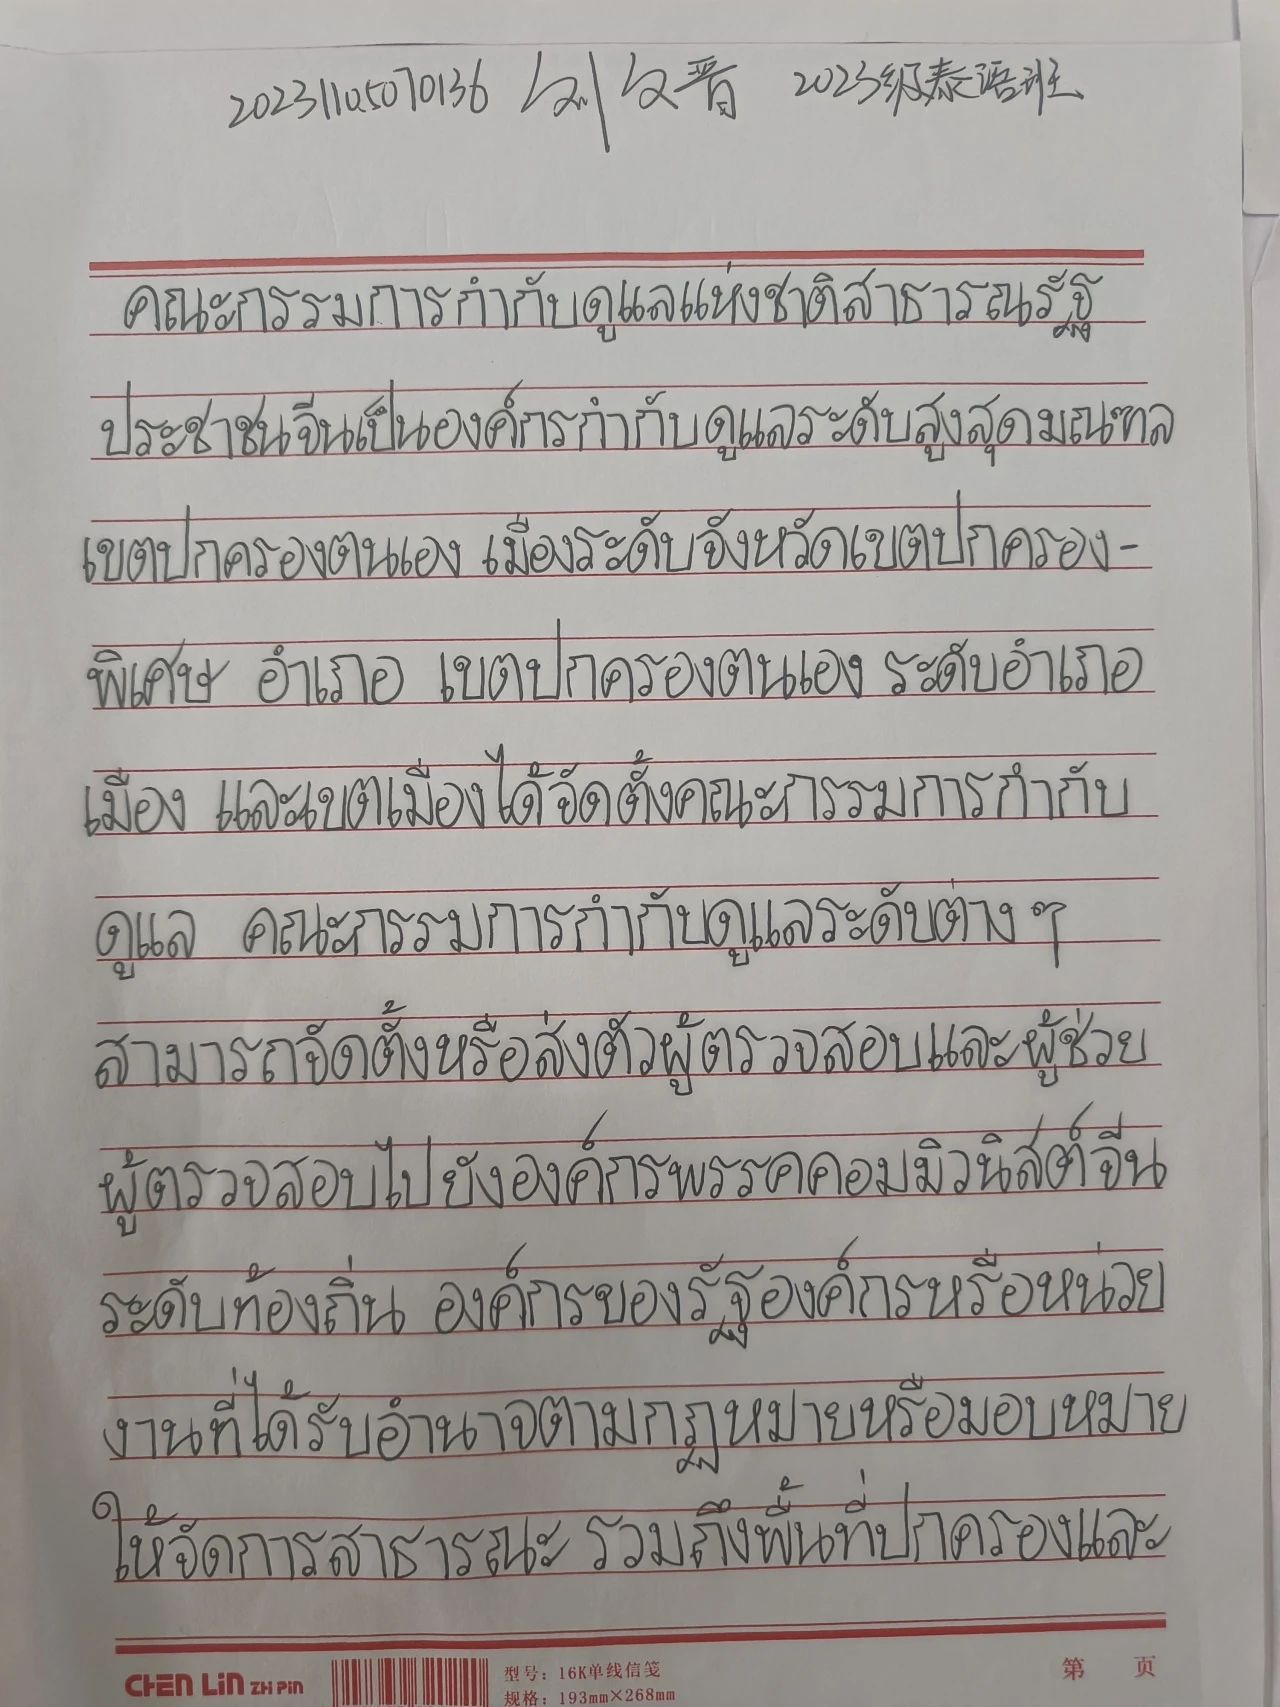 20231105070136 刘文晋 2023级泰语班
คณะกรรมการกำกับดูแลแห่งชาติสาธารณรัฐ
ประชาชนจีนเป็นองค์กรกำกับดูแลระดับสูงสุดมณฑล
เขตปกครองตนเอง เมืองระดับจังหวัดเขตปกครอง-
พิเศษ อำเภอ เขตปกครองตนเอง ระดับอำเภอ
เมือง และเขตเมืองได้จัดตั้งคณะกรรมการกำกับ
ดูแล คณะกรรมการกำกับดูแลระดับต่างๆ
สามารถจัดตั้งหรือส่งตัวผู้ตรวจสอบและผู้ช่วย
ผู้ตรวจสอบไปยังองค์กรพรรคคอมมิวนิสต์จีน
ระดับท้องถิ่น องค์กรของรัฐองค์กรหรือหน่วย
งานที่ได้รับอำนาจตามกฎหมายหรือมอบหมาย
ให้จัดการสาธารณะ รวมถึงพื้นที่ปกครองและ
CHEN LIN ZHI PIN 型号：16K单线信笺 第 页
规格：193mm×268mm